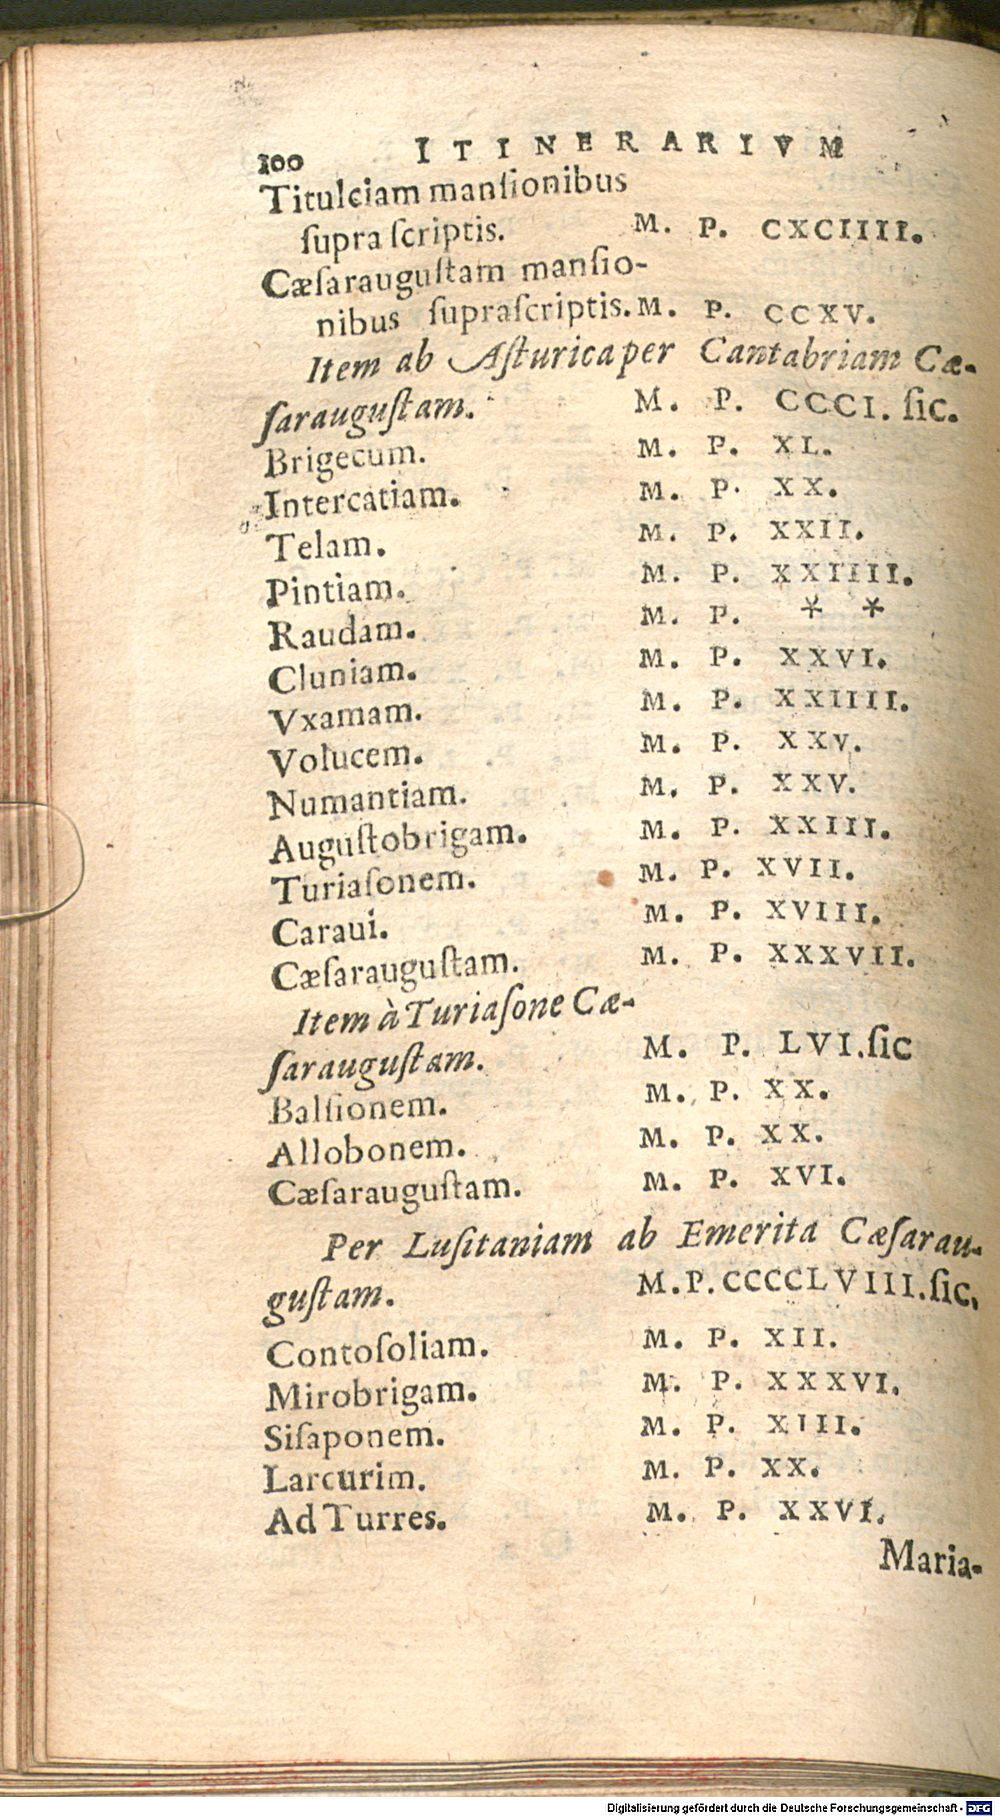 100 ITINERARIVM
Titulciam mansionibus
supra scriptis. M. P. CXCIIII.
Cæsaraugustam mansio-
nibus suprascriptis. M. P. CCXV.
Item ab Asturica per Cantabriam Cæ-
saraugustam. M. P. CCCI. sic.
Brigecum. M. P. XL.
Intercatiam. M. P. XX.
Telam. M. P. XXII.
Pintiam. M. P. XXIIII.
Raudam. M. P. * *
Cluniam. M. P. XXVI.
Vxamam. M. P. XXIIII.
Volucem. M. P. XXV.
Numantiam. M. P. XXV.
Augustobrigam. M. P. XXIII.
Turiasonem. M. P. XVII.
Caraui. M. P. XVIII.
Cæsaraugustam. M. P. XXXVII.
Item à Turiasone Cæ-
saraugustam. M. P. LVI. sic
Balsionem. M. P. XX.
Allobonem. M. P. XX.
Cæsaraugustam. M. P. XVI.
Per Lusitaniam ab Emerita Cæsarau-
gustam. M. P. CCCCLVIII. sic.
Contosoliam. M. P. XII.
Mirobrigam. M. P. XXXVI.
Sisaponem. M. P. XIII.
Larcurim. M. P. XX.
Ad Turres. M. P. XXVI.
Maria-
Digitalisierung gefördert durch die Deutsche Forschungsgemeinschaft - DFG